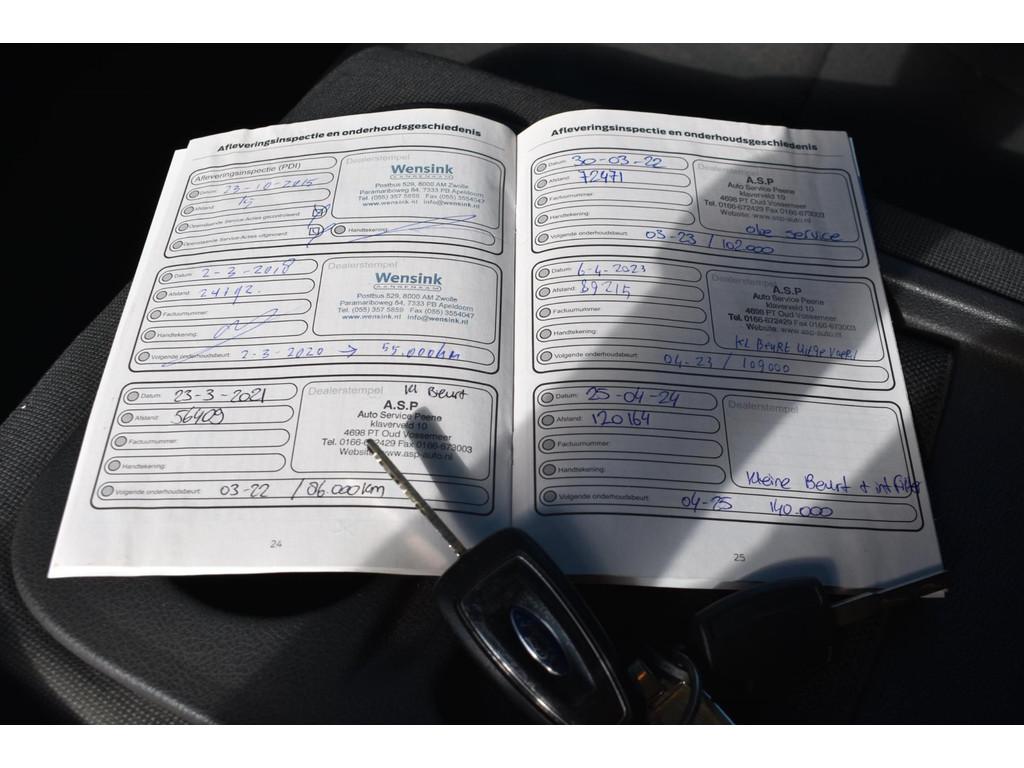 Afleveringsinspectie en onderhoudsgeschiedenis
Afleveringsinspectie (PDI)
Datum: 23-10-2015
Afstand: 15
Openstaande Service-Acties gecontroleerd
Openstaande Service-Acties uitgevoerd
Dealerstempel
Wensink
Postbus 529, 8000 AM Zwolle
Paramariboweg 84, 7333 PB Apeldoorn
Tel. (055) 357 5859 Fax (055) 3554047
www.wensink.nl info@wensink.nl
Handtekening:
Datum: 2-3-2018
Afstand: 24192
Factuurnummer:
Handtekening:
Volgende onderhoudsbeurt: 2-3-2020 → 55.000km
Dealerstempel
Wensink
Postbus 529, 8000 AM Zwolle
Paramariboweg 84, 7333 PB Apeldoorn
Tel. (055) 357 5859 Fax (055) 3554047
www.wensink.nl info@wensink.nl
Datum: 23-3-2021
Afstand: 56409
Factuurnummer:
Handtekening:
Volgende onderhoudsbeurt: 03-22 / 86.000km
Dealerstempel Kl Beurt
A.S.P
Auto Service Peene
klaverveld 10
4698 PT Oud Vossemeer
Tel. 0166-672429 Fax 0166-673003
Website: www.asp-auto.nl
24
Afleveringsinspectie en onderhoudsgeschiedenis
Datum: 30-03-22
Afstand: 72471
Factuurnummer:
Handtekening:
Volgende onderhoudsbeurt: 03-23 / 102.000
Dealerstempel
A.S.P
Auto Service Peene
klaverveld 10
4698 PT Oud Vossemeer
Tel. 0166-672429 Fax 0166-673003
Website: www.asp-auto.nl
olie service
Datum: 6-4-2023
Afstand: 89215
Factuurnummer:
Handtekening:
Volgende onderhoudsbeurt: 04-23 / 109000
Dealerstempel
A.S.P
Auto Service Peene
klaverveld 10
4698 PT Oud Vossemeer
Tel. 0166-672429 Fax 0166-673003
Website: www.asp-auto.nl
Kl Beurt Uitgevoerd
Datum: 25-04-24
Afstand: 120164
Factuurnummer:
Handtekening:
Volgende onderhoudsbeurt: 04-25 140.000
Dealerstempel
Kleine Beurt + int filter
25
Ford